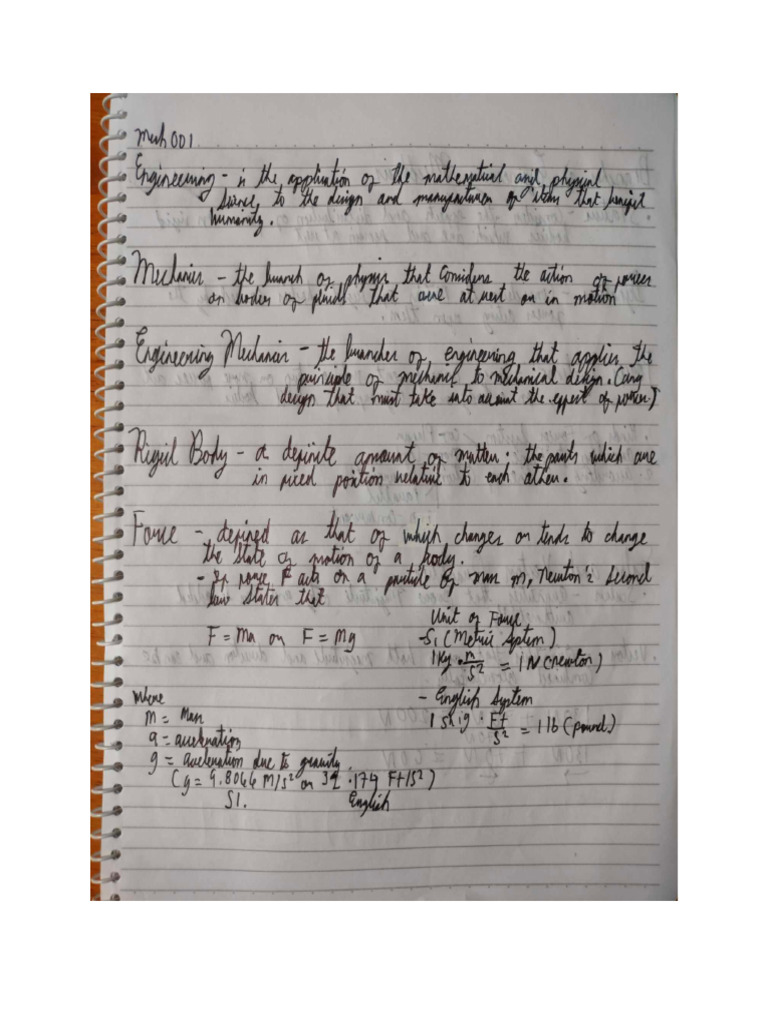 Mech 001
Engineering - is the application of the mathematical and physical
science, to the design and manufacturer of items that benefit
humanity.
Mechanics - the branch of physics that considers the action of forces
on bodies of fluids that are at rest or in motion
Engineering Mechanics - the branches of engineering that applies the
principle of mechanics to mechanical design. (any
design that must take into account the effect of forces.)
Rigid Body - a definite amount of matter: the parts which are
in fixed position relative to each other.
Force - defined as that of which changes or tends to change
the state of motion of a body.
- If force F acts on a particle of mass m, Newton's Second
law states that
F = Ma or F = Mg
Unit of Force
- S1 (Metric System)
1 Kg · m/s² = 1 N (newton)
- English System
1 slug · Ft/s² = 1 lb (pound)
Where
m = Mass
a = acceleration
g = acceleration due to gravity.
(g = 9.8066 M/s² or 32.174 Ft/s²)
S1. English